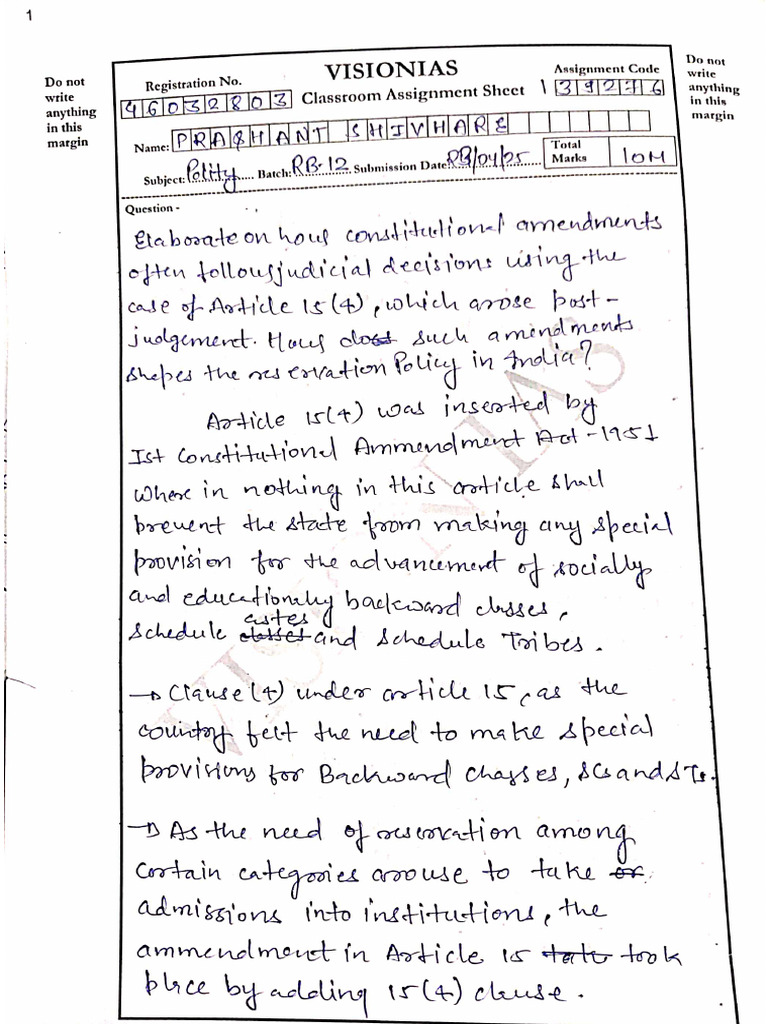 1
Do not
write
anything
in this
margin
VISIONIAS
Registration No.
46032803
Classroom Assignment Sheet
Assignment Code
139276
Name: PRASHANT SHIVHARE
Subject: Polity Batch: RB-12 Submission Date: RB/04/25
Total
Marks
10M
Do not
write
anything
in this
margin
Question -
Elaborate on how constitutional amendments
often follows judicial decisions using the
case of Article 15(4), which arose post-
judgement. How does such amendments
shapes the reservation Policy in India?
Article 15(4) was inserted by
Ist Constitutional Ammendment Act - 1951
where in nothing in this article shall
prevent the state from making any special
provision for the advancement of socially
and educationally backward classes,
schedule castes and schedule Tribes.
→ Clause (4) under article 15, as the
country felt the need to make special
provisions for Backward Classes, SCs and STs.
→ As the need of reservation among
certain categories arouse to take
admissions into institutions, the
ammendment in Article 15 took
place by adding 15(4) clause.
VISION IAS